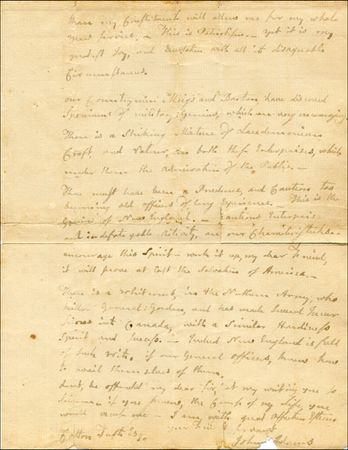 than my Constituents will allow me for my whole
years service, — This is Patriotism. — yet it is my
greatest Joy, and Consolation with all its disagreeable
Circumstances.
our Countrymen Meigs and Barton have discovered
Specimens of military Genius, which are very encouraging
There is a Striking Mixture of Lacedemonian
Craft and Valour, in both these Enterprises, which
render them the Admiration of the Public. —
There must have been a Prudence, and Caution too
becoming old officers of long Experience. — This is the
Genius of New England. — Cautious Enterprise
and indefatigable Activity, are our Characteristicks —
encourage this Spirit — work it up, my dear Friend,
it will prove at last the Salvation of America. —
There is a in the Northern Army, who
killed General Gordon, and has made several
into Canada, with a Similar Hardiness
Spirit and Success. — Indeed New England is full
of such Wits, if our General officers, knew how
to avail themselves of them.
dont be offended my dear Sir, at my writing you so
if you knew, the of my Life, you
would excuse me — I am, with great Affection & Esteem
your Friend & Servant
Cotton Tufts Esq
John Adams